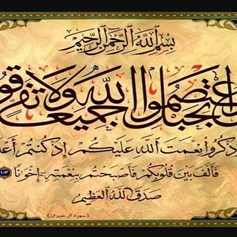 بسم الله الرحمن الرحيم
واعتصموا بحبل الله جميعا ولا تفرقوا
واذكروا نعمت الله عليكم إذ كنتم أعداء
فألف بين قلوبكم فأصبحتم بنعمته إخوانا
صدق الله العظيم
(سورة آل عمران)